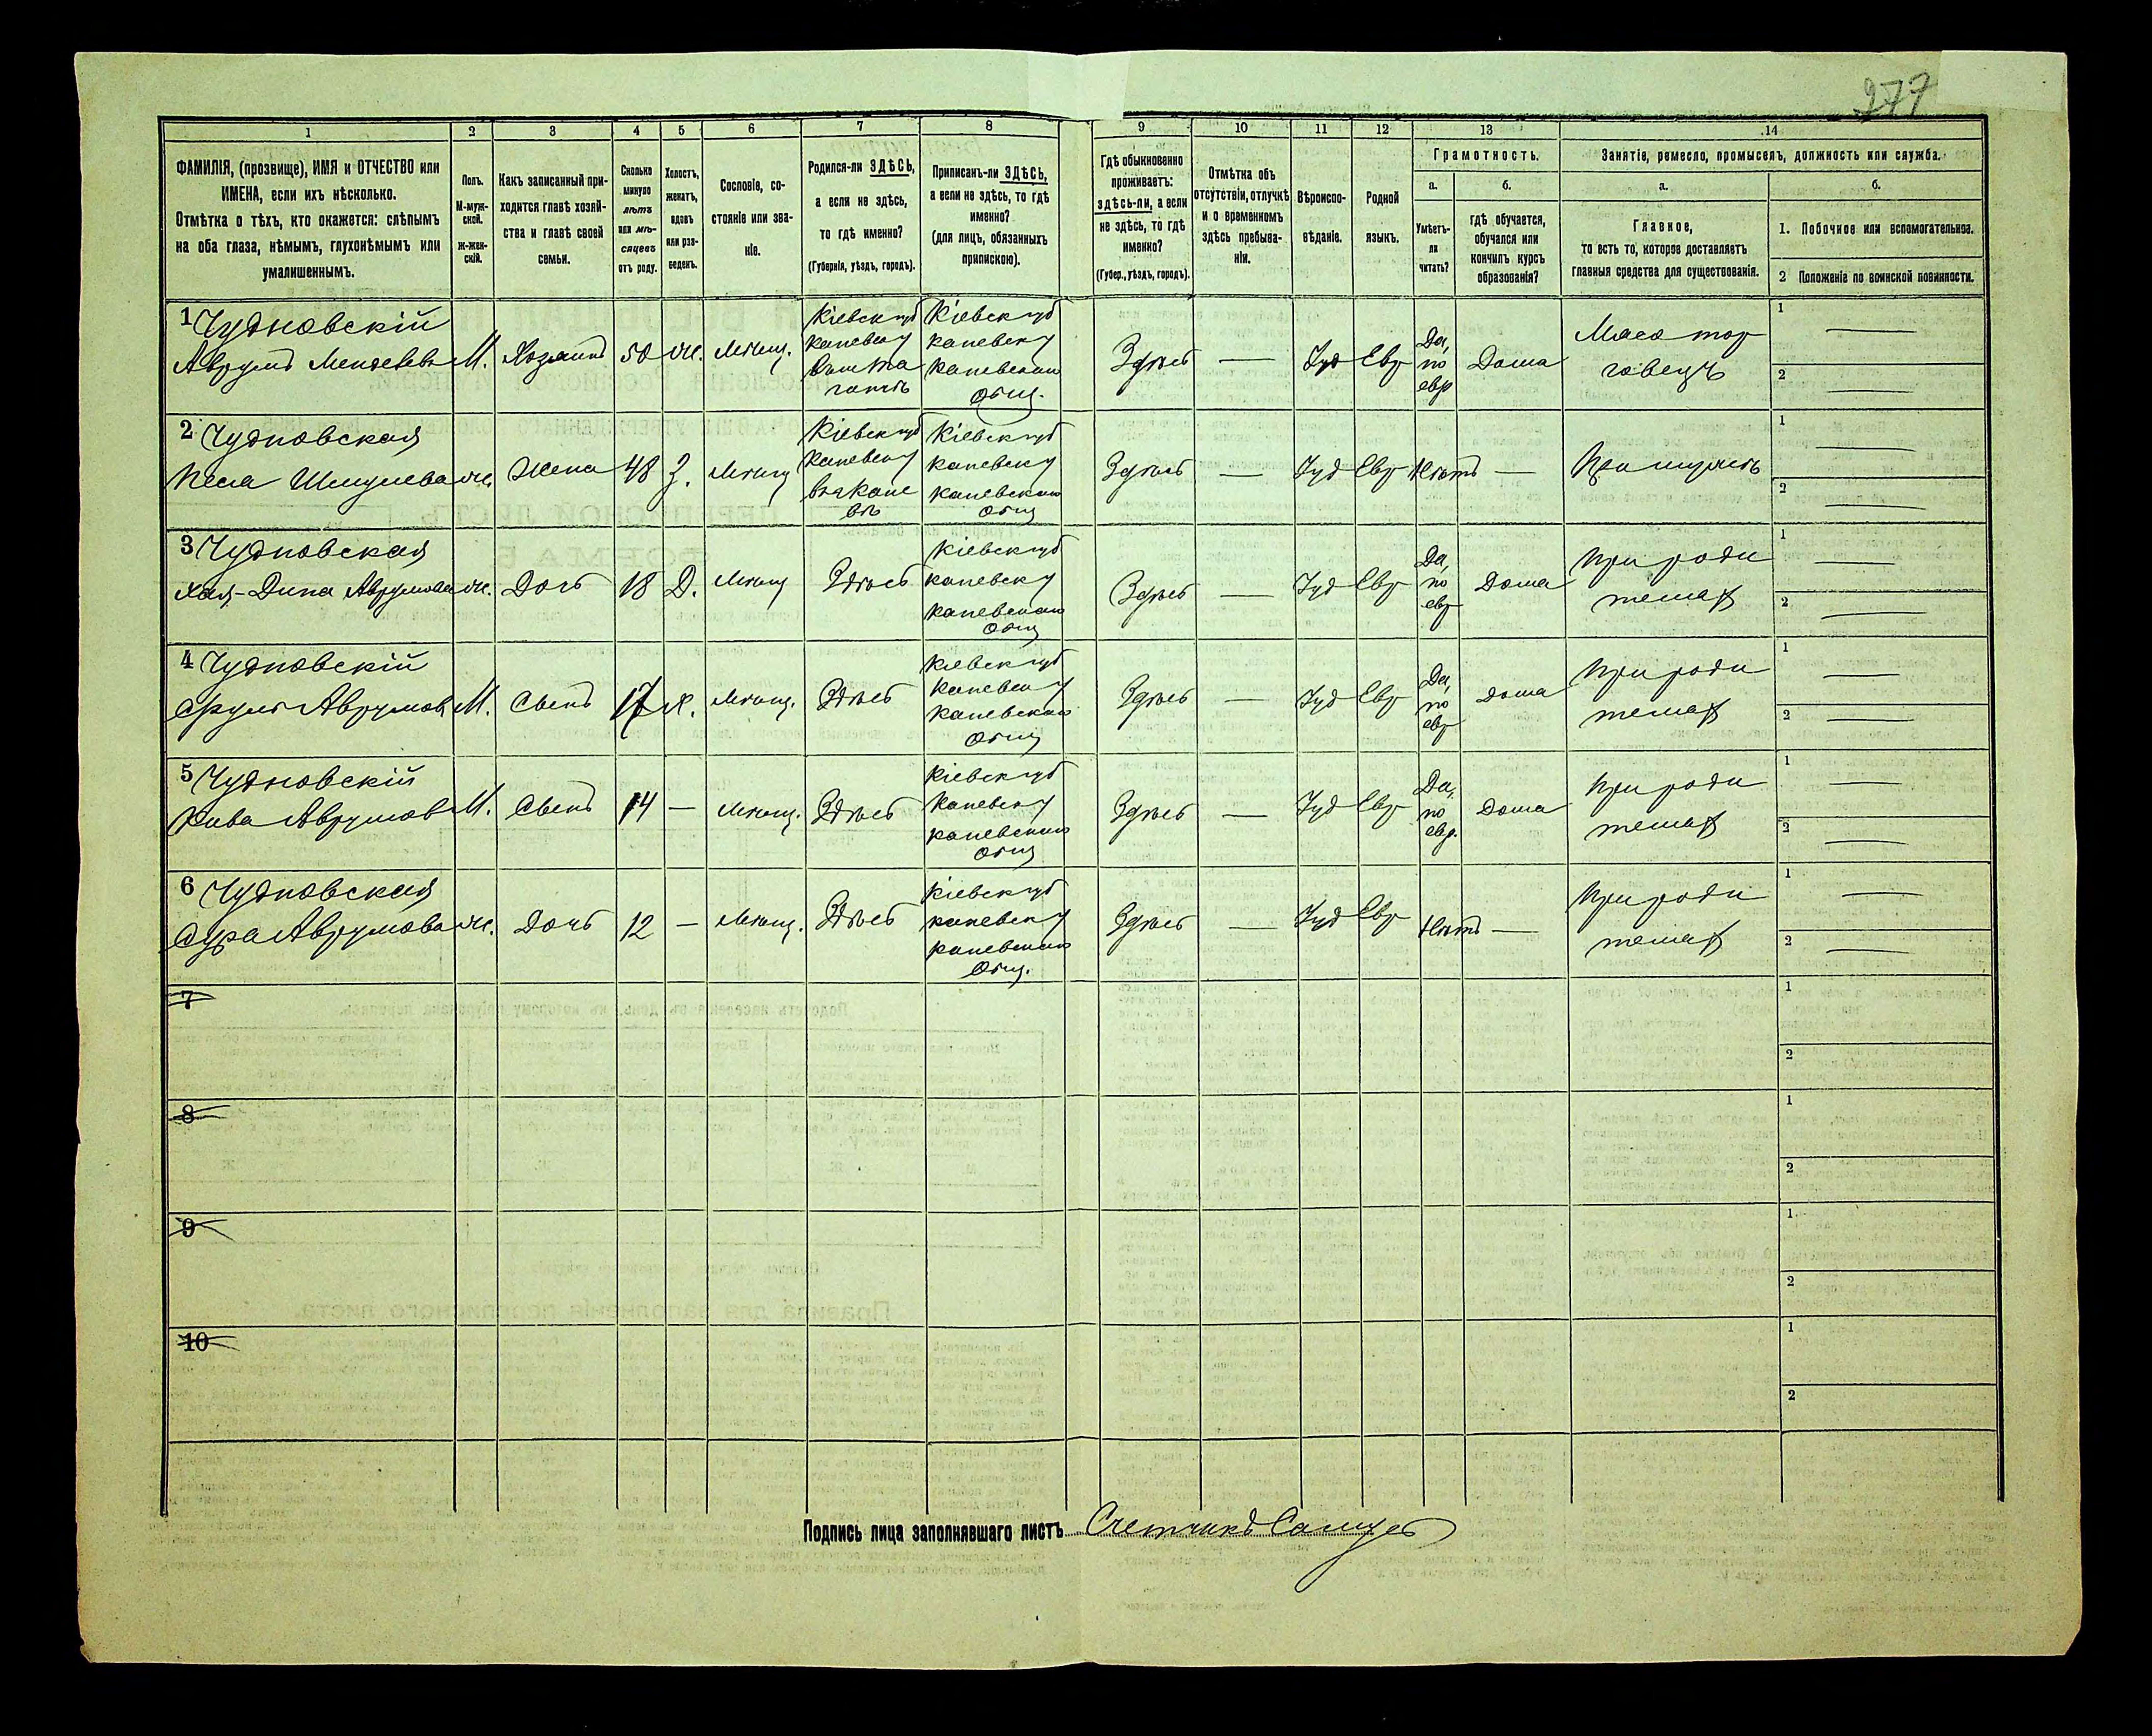 277
1 2 3 4 5 6 7 8 9 10 11 12 13 14
ФАМИЛІЯ, (прозвище), ИМЯ и ОТЧЕСТВО или
ИМЕНА, если ихъ нѣсколько.
Отмѣтка о тѣхъ, кто окажется: слѣпымъ
на оба глаза, нѣмымъ, глухонѣмымъ или
умалишеннымъ.
Полъ.
М-муж-
ской.
ж-жен-
скій.
Какъ записанный при-
ходится главѣ хозяй-
ства и главѣ своей
семьи.
Сколько
минуло
лѣтъ
или мѣ-
сяцевъ
отъ роду.
Холостъ,
женатъ,
вдовъ
или раз-
веденъ.
Сословіе, со-
стояніе или зва-
ніе.
Родился-ли ЗДѢСЬ,
а если не здѣсь,
то гдѣ именно?
(Губернія, уѣздъ, городъ).
Приписанъ-ли ЗДѢСЬ,
а если не здѣсь, то гдѣ
именно?
(для лицъ, обязанныхъ
припискою).
Гдѣ обыкновенно
проживаетъ:
здѣсь-ли, а если
не здѣсь, то гдѣ
именно?
(Губер., уѣздъ, городъ).
Отмѣтка объ
отсутствіи, отлучкѣ
и о временномъ
здѣсь пребыва-
ніи.
Вѣроиспо-
вѣданіе.
Родной
языкъ.
Грамотность.
а.
Умѣетъ-
ли
читать?
б.
гдѣ обучается,
обучался или
кончилъ курсъ
образованія?
Занятіе, ремесло, промыселъ, должность или служба.
а.
Главное,
то есть то, которое доставляетъ
главныя средства для существованія.
б.
1. Побочное или вспомогательное.
2 Положеніе по воинской повинности.
1 Чудновскій
Аврумъ М.
Хозяинъ
50
Ж.
Мѣщ.
Кіевск губ
каневск у
Кіевск губ
каневск у
каневскаго
общ.
Здѣсь
—
Іуд
Евр
Да,
по
евр
Дома
Мясо тор
говецъ
1 —
2 —
2 Чудновская
Песа Шмулева ж.
Жена
48
З.
Мѣщ
Кіевск губ
каневск у
въ г Кане
вѣ
Кіевск губ
каневск у
каневскаго
общ
Здѣсь
—
Іуд
Евр
Нѣтъ
—
При мужѣ
1 —
2 —
3 Чудновская
Хая-Дина Аврумова ж.
Дочь
18
Д.
Мѣщ
Здѣсь
Кіевск губ
каневск у
каневскаго
общ
Здѣсь
—
Іуд
Евр
Да,
по
евр
Дома
При роди
теляхъ
1 —
2 —
4 Чудновскій
Сруль Аврумов М.
Сынъ
17
Х.
Мѣщ.
Здѣсь
Кіевск губ
каневск у
каневскаго
общ
Здѣсь
—
Іуд
Евр
Да,
по
евр
Дома
При роди
теляхъ
1 —
2 —
5 Чудновскій
Аврумов М.
Сынъ
14
—
Мѣщ.
Здѣсь
Кіевск губ
каневск у
каневскаго
общ
Здѣсь
—
Іуд
Евр
Да,
по
евр.
Дома
При роди
теляхъ
1 —
2 —
6 Чудновская
Сура Аврумова ж.
Дочь
12
—
Мѣщ.
Здѣсь
Кіевск губ
каневск у
каневскаго
общ.
Здѣсь
—
Іуд
Евр
Нѣтъ
—
При роди
теляхъ
1 —
2 —
7
1
2
8
1
2
9
1
2
10
1
2
Подпись лица заполнявшаго листъ Счетчикъ